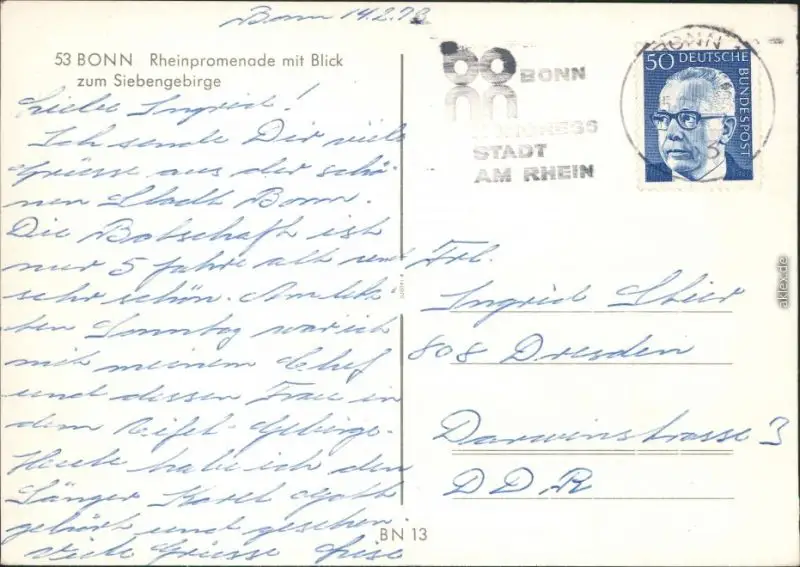 Bonn 14.2.73
53 BONN Rheinpromenade mit Blick
zum Siebengebirge
Liebe Ingrid!
Ich sende Dir viele
Grüsse aus der schö-
nen Stadt Bonn.
Die Botschaft ist
nur 5 Jahre alt und
sehr schön. Am letz-
ten Sonntag war ich
mit meinem Chef
und dessen Frau in
dem Eifel-Gebirge.
Heute habe ich den
Sänger Karel Gott
gehört und gesehen.
Viele Grüsse
BN 13
BONN
STADT
AM RHEIN
BONN
50 DEUTSCHE
BUNDESPOST
Frl.
Ingrid Stier
808 Dresden
Darwinstrasse 3
DDR
aklex.de